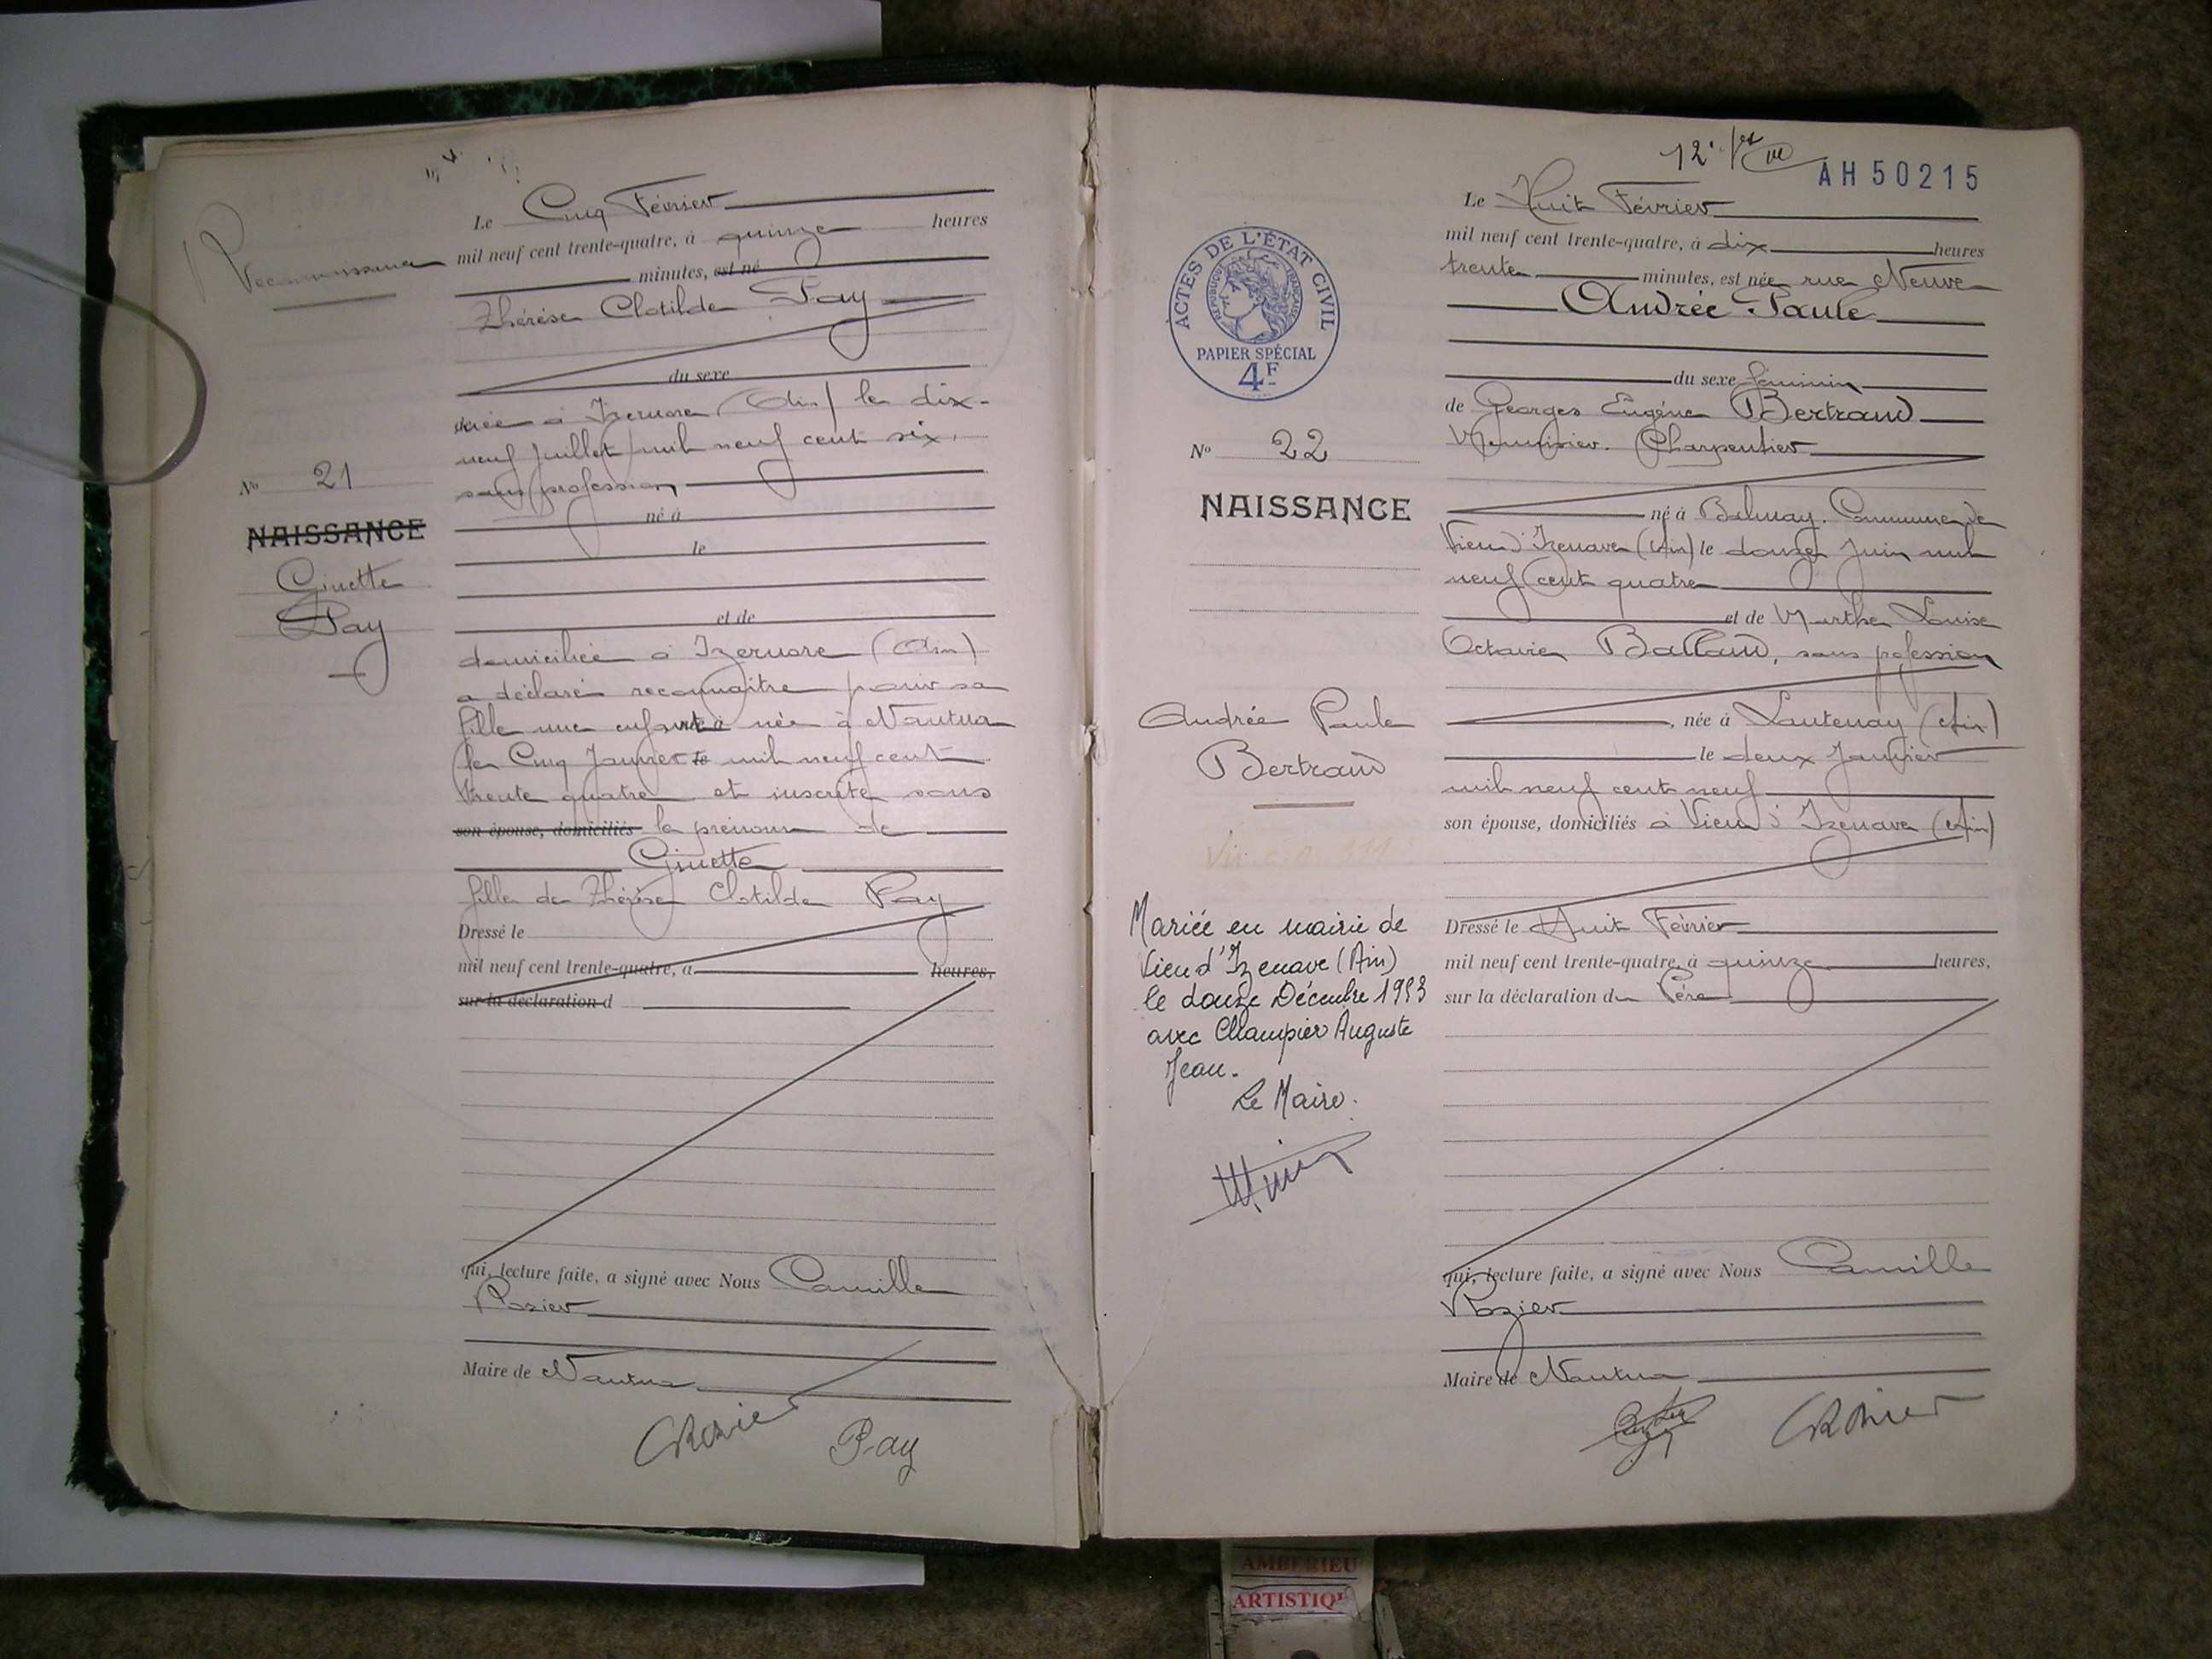 Reconnaissance
Le Cinq Février
mil neuf cent trente-quatre, à quinze heures
minutes, est né
Thérèse Clotilde Pay
du sexe
née à Izernore (Ain) le dix-
neuf Juillet mil neuf cent six,
sans profession
né à
le
et de
domiciliée à Izernore (Ain)
a déclaré reconnaitre pour sa
fille une enfant née à Nantua
le Cinq Janvier mil neuf cent
trente quatre et inscrite sous
son épouse, domiciliés le prénom de
Ginette
fille de Thérèse Clotilde Pay
Dressé le
mil neuf cent trente-quatre, à heures,
sur la déclaration d
qui, lecture faite, a signé avec Nous Camille
Rozier
Maire de Nantua
CRozier Pay
No 21
NAISSANCE
Ginette
Pay
12e
AH50215
Le Huit Février
mil neuf cent trente-quatre, à dix heures
trente minutes, est née rue Neuve
Andrée Paule
du sexe féminin
de Georges Eugène Bertrand
Menuisier. Charpentier
né à Balmay. Commune de
Vieu d'Izenave (Ain) le douze Juin mil
neuf cent quatre
et de Marthe Louise
Octavie Balland, sans profession
, née à Lantenay (Ain)
le deux Janvier
mil neuf cent neuf
son épouse, domiciliés à Vieu d'Izenave (Ain)
Dressé le Huit Février
mil neuf cent trente-quatre, à quinze heures,
sur la déclaration du Père
qui, lecture faite, a signé avec Nous Camille
Rozier
Maire de Nantua
CRozier
ACTES DE L'ÉTAT CIVIL
RÉPUBLIQUE FRANÇAISE
PAPIER SPÉCIAL
4F
No 22
NAISSANCE
Andrée Paule
Bertrand
Mariée en mairie de
Vieu d'Izenave (Ain)
le douze Décembre 1953
avec Champier Auguste
Jean.
Le Maire.
AMBERIEU
ARTISTIQ